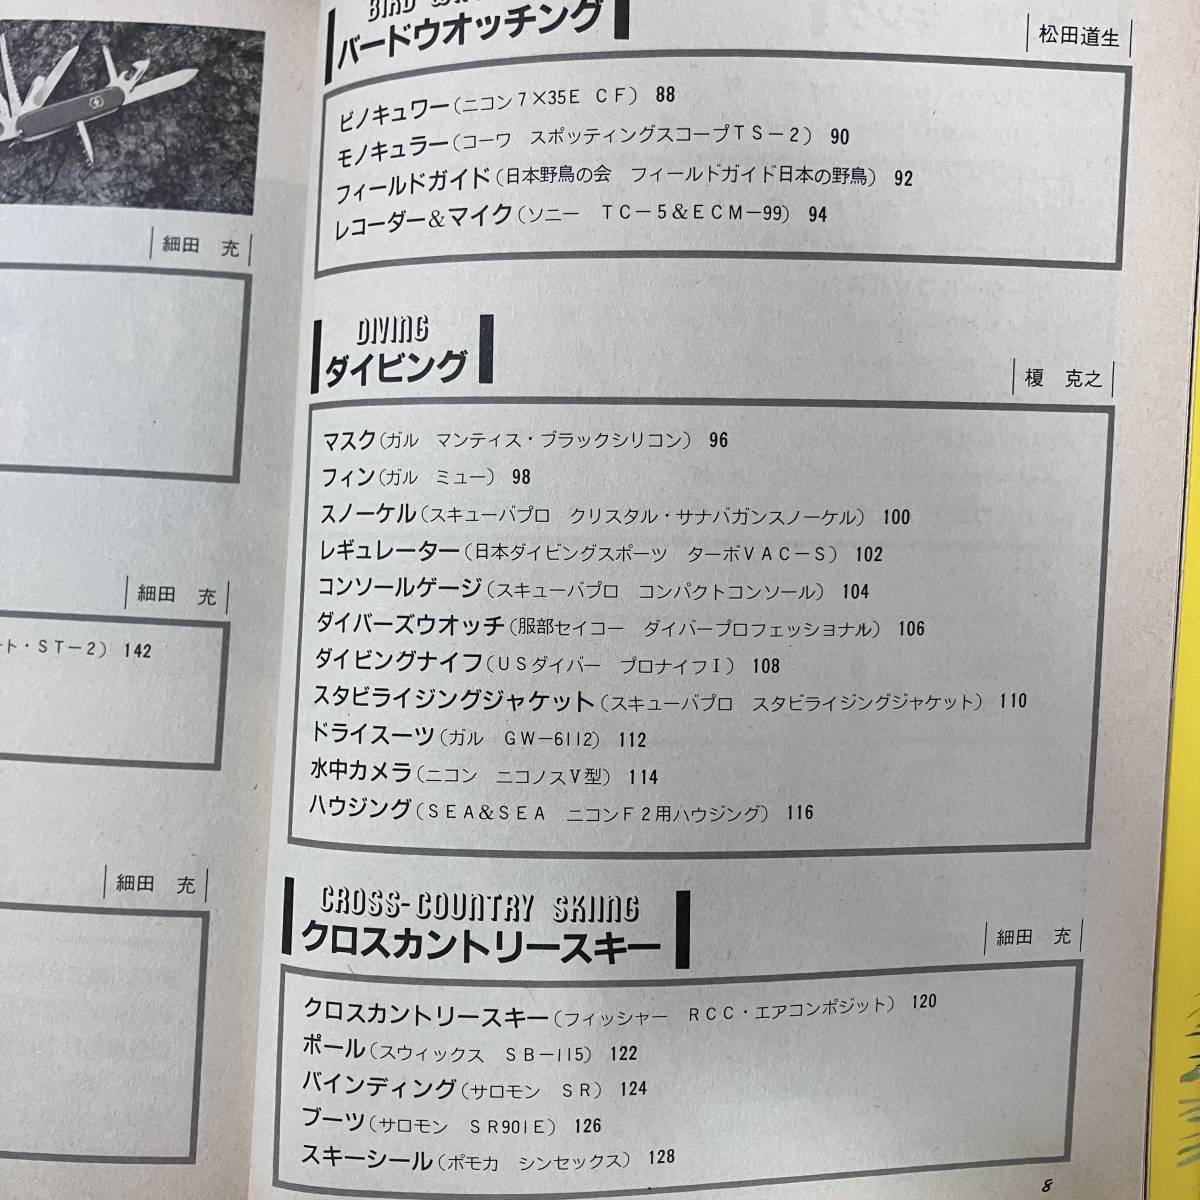 細田 充
細田 充
ート・ST-2) 142
細田 充
BIRD
バードウオッチング
松田道生
ビノキュワー(ニコン7×35E CF) 88
モノキュラー(コーワ スポッティングスコープTS-2) 90
フィールドガイド(日本野鳥の会 フィールドガイド日本の野鳥) 92
レコーダー&マイク(ソニー TC-5&ECM-99) 94
DIVING
ダイビング
榎 克之
マスク(ガル マンティス・ブラックシリコン) 96
フィン(ガル ミュー) 98
スノーケル(スキューバプロ クリスタル・サナバガンスノーケル) 100
レギュレーター(日本ダイビングスポーツ ターボVAC-S) 102
コンソールゲージ(スキューバプロ コンパクトコンソール) 104
ダイバーズウオッチ(服部セイコー ダイバープロフェッショナル) 106
ダイビングナイフ(USダイバー プロナイフI) 108
スタビライジングジャケット(スキューバプロ スタビライジングジャケット) 110
ドライスーツ(ガル GW-6112) 112
水中カメラ(ニコン ニコノスV型) 114
ハウジング(SEA&SEA ニコンF2用ハウジング) 116
CROSS-COUNTRY SKIING
クロスカントリースキー
細田 充
クロスカントリースキー(フィッシャー RCC・エアコンポジット) 120
ポール(スウィックス SB-115) 122
バインディング(サロモン SR) 124
ブーツ(サロモン SR901E) 126
スキーシール(ポモカ シンセックス) 128
8